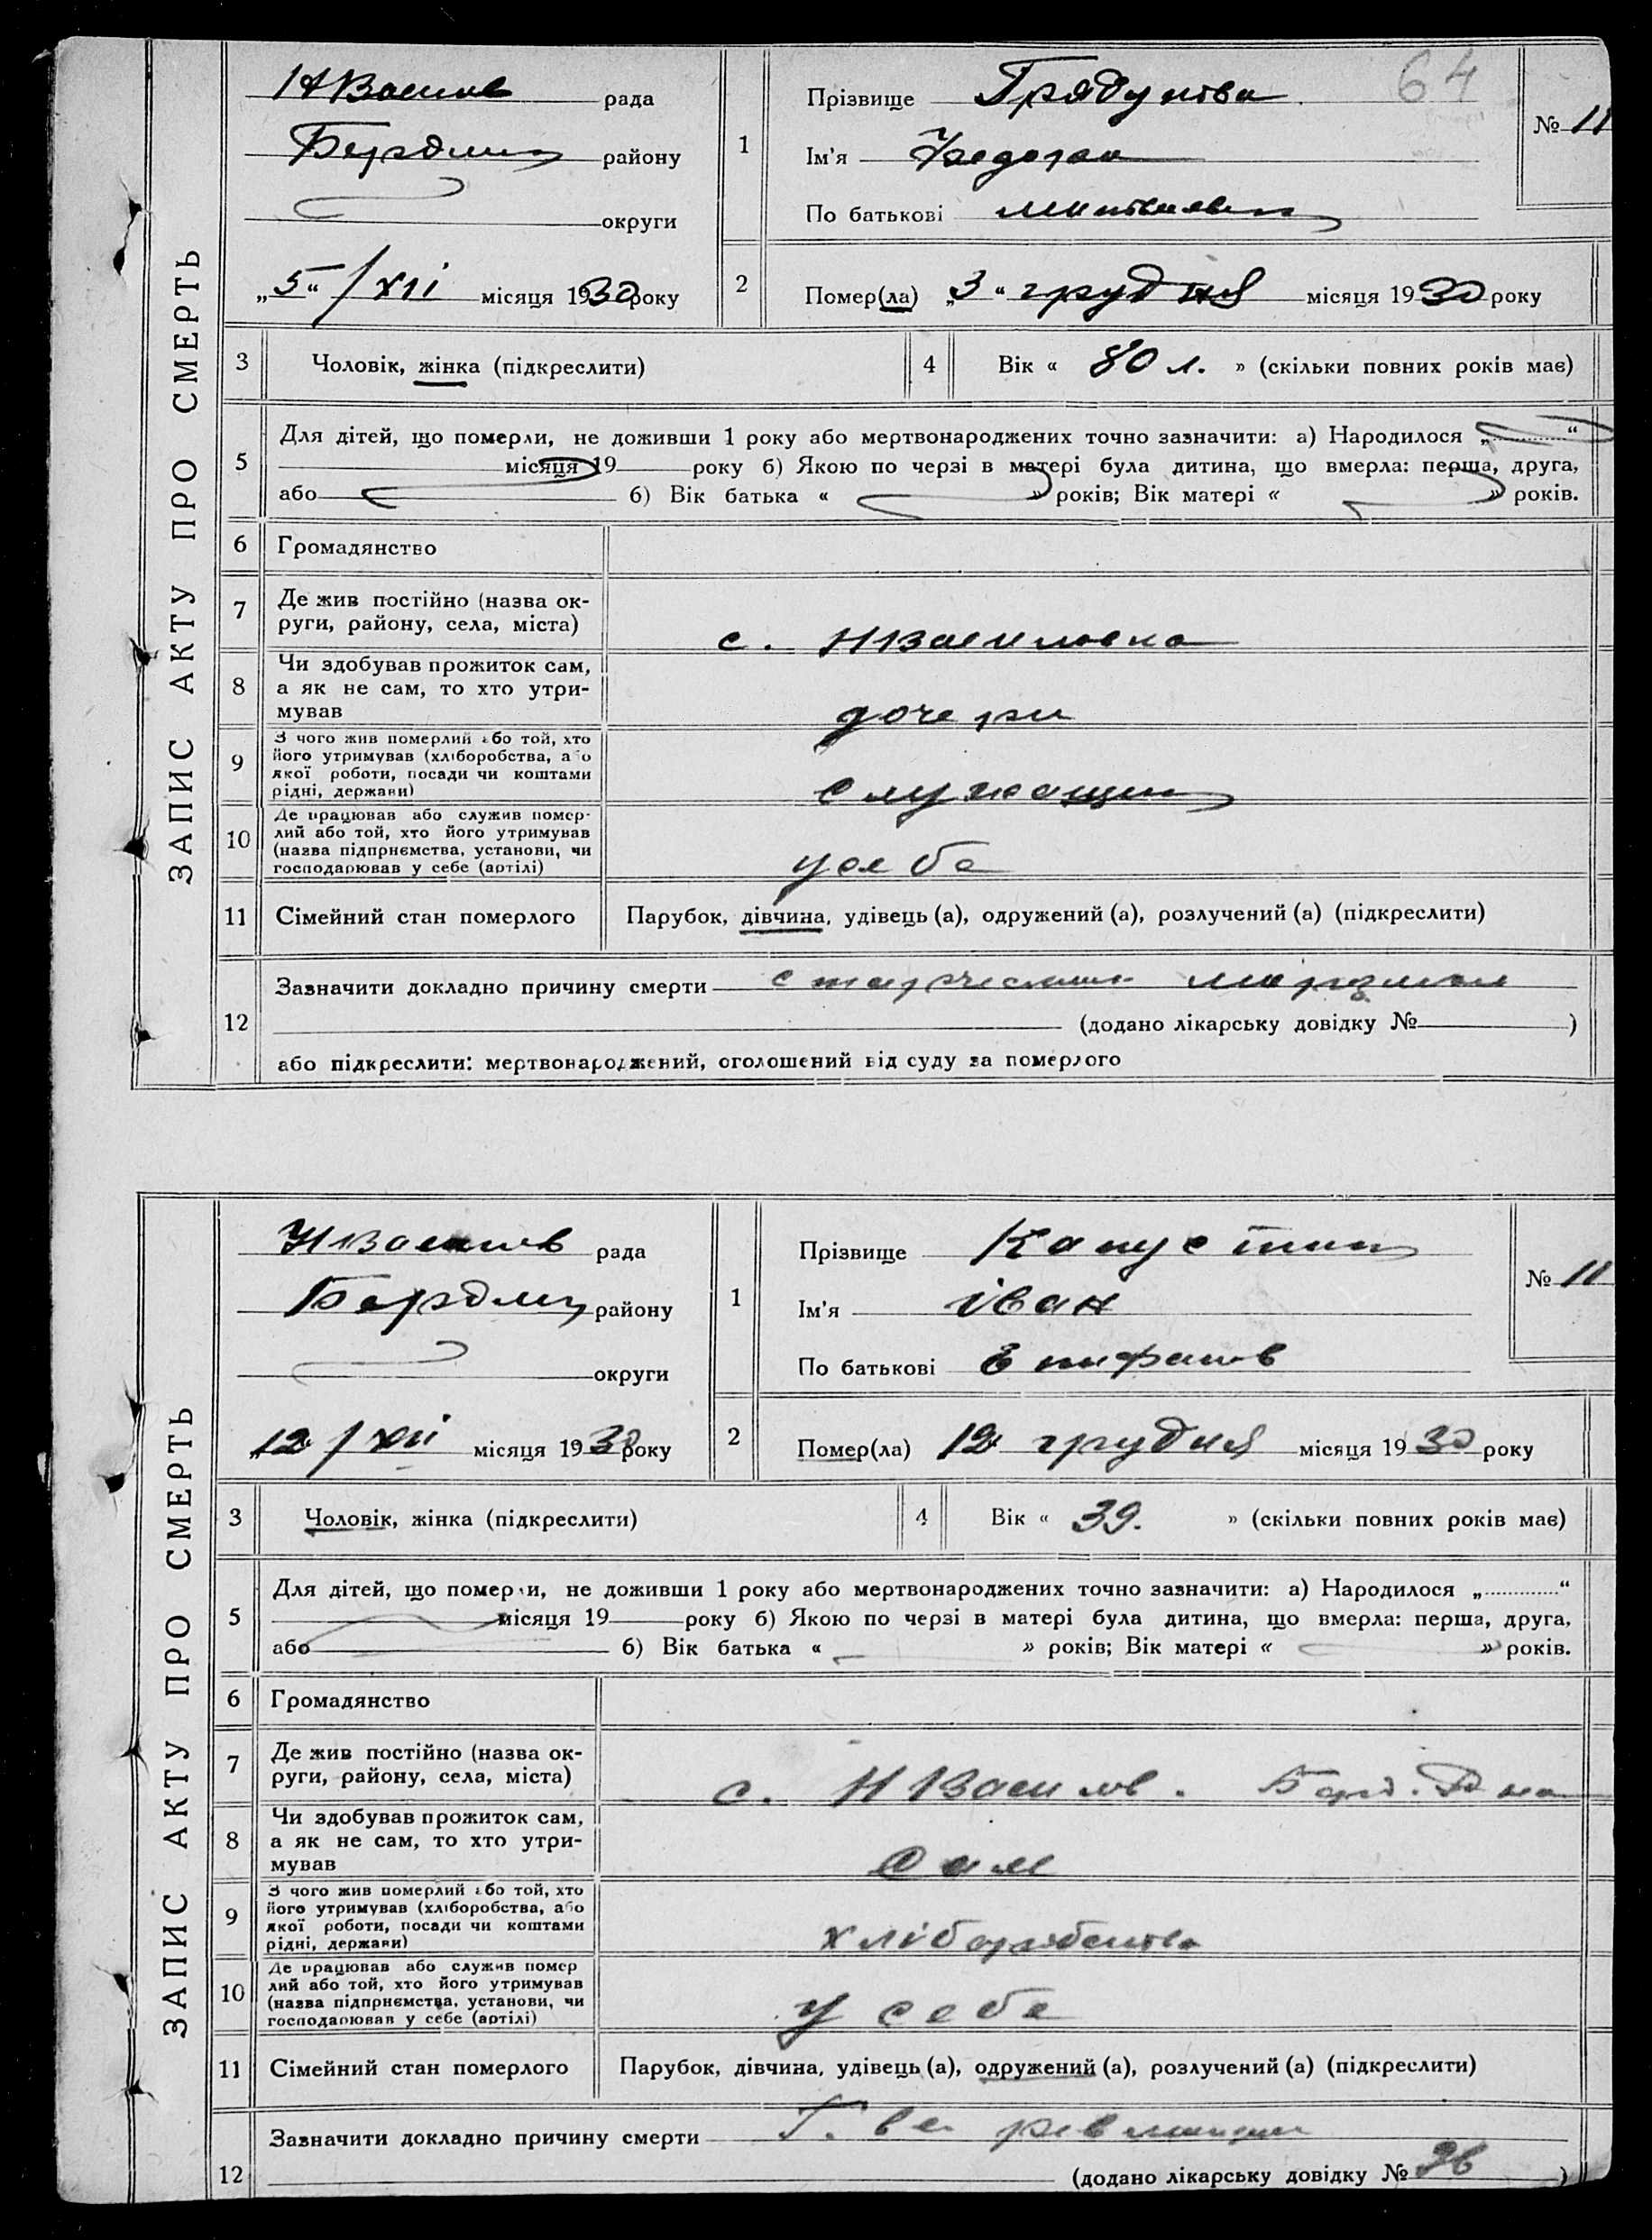 ЗАПИС АКТУ ПРО СМЕРТЬ
64
НВасилів рада
Бердянськ району
округи
„5“ /XII місяця 1930 року
1
Прізвище
Ім'я
По батькові
№ 11
2
Помер(ла) „3“ грудня місяця 1930 року
3 Чоловік, жінка (підкреслити)
4 Вік « 80 л. » (скільки повних років має)
5 Для дітей, що померли, не доживши 1 року або мертвонароджених точно зазначити: а) Народилося „............“
місяця 19 року б) Якою по черзі в матері була дитина, що вмерла: перша, друга,
або 6) Вік батька « » років; Вік матері « » років.
6 Громадянство
7 Де жив постійно (назва ок-
руги, району, села, міста)
с. НВасиловка
8 Чи здобував прожиток сам,
а як не сам, то хто утри-
мував
дочери
9 З чого жив померлий або той, хто
його утримував (хліборобства, або
якої роботи, посади чи коштами
рідні, держави)
служащий
10 Де працював або служив помер-
лий або той, хто його утримував
(назва підприємства, установи, чи
господарював у себе (артілі)
11 Сімейний стан померлого Парубок, дівчина, удівець (а), одружений (а), розлучений (а) (підкреслити)
12 Зазначити докладно причину смерти старческий маразм
(додано лікарську довідку № )
або підкреслити: мертвонароджений, оголошений від суду за померлого
ЗАПИС АКТУ ПРО СМЕРТЬ
НВасилів рада
Бердянськ району
округи
„12“ /XII місяця 1930 року
1
Прізвище Капустин
Ім'я іван
По батькові Епифанов
№ 11
2
Помер(ла) 12 грудня місяця 1930 року
3 Чоловік, жінка (підкреслити)
4 Вік « 39. » (скільки повних років має)
5 Для дітей, що померли, не доживши 1 року або мертвонароджених точно зазначити: а) Народилося „............“
місяця 19 року б) Якою по черзі в матері була дитина, що вмерла: перша, друга,
або 6) Вік батька « » років; Вік матері « » років.
6 Громадянство
7 Де жив постійно (назва ок-
руги, району, села, міста)
с. НВасилов. Берд. Р-на
8 Чи здобував прожиток сам,
а як не сам, то хто утри-
мував
Сам
9 З чого жив померлий або той, хто
його утримував (хліборобства, або
якої роботи, посади чи коштами
рідні, держави)
хліборобство
10 Де працював або служив помер
лий або той, хто його утримував
(назва підприємства, установи, чи
господарював у себе (артілі)
У себе
11 Сімейний стан померлого Парубок, дівчина, удівець (а), одружений (а), розлучений (а) (підкреслити)
12 Зазначити докладно причину смерти
(додано лікарську довідку № )